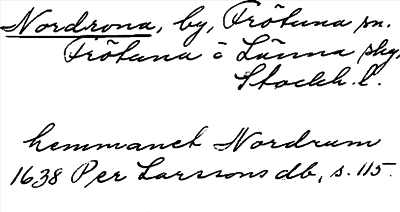 Nordrona, by, Frötuna sn.
Frötuna o Länna skg,
Stockh. l.
hemmanet Nordrum
1638 Per Larssons db, s. 115.